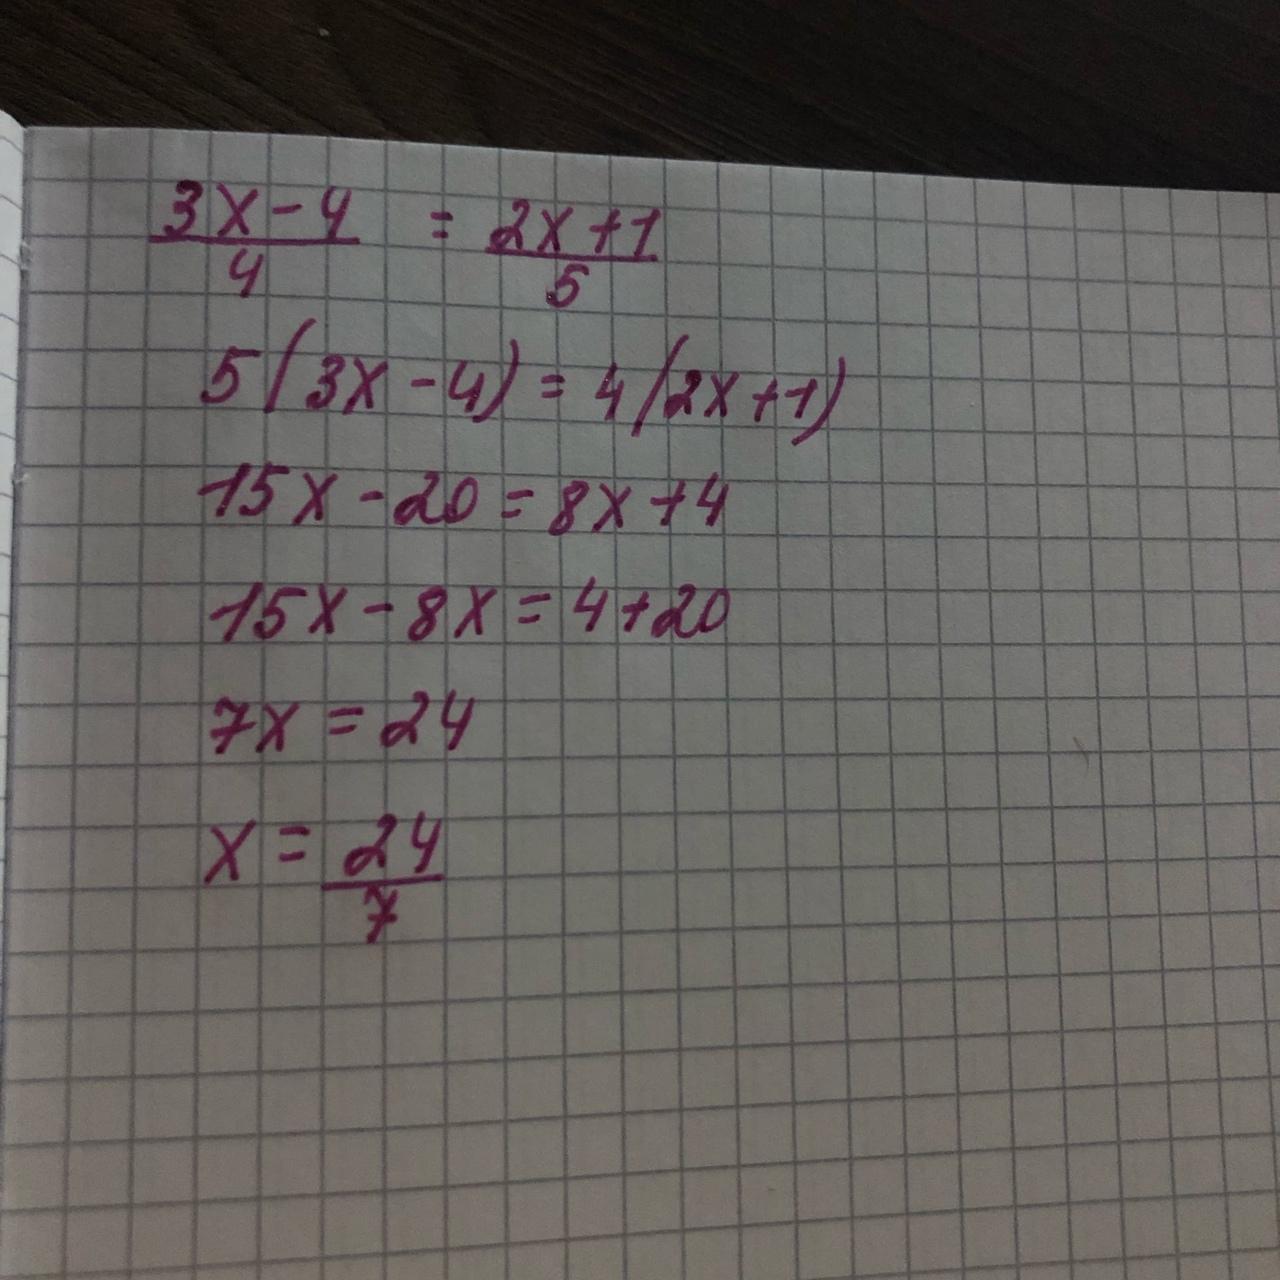 3x-4/4 = 2x+1/5
5(3x-4)=4(2x+1)
15x-20=8x+4
15x-8x=4+20
7x=24
x=24/7